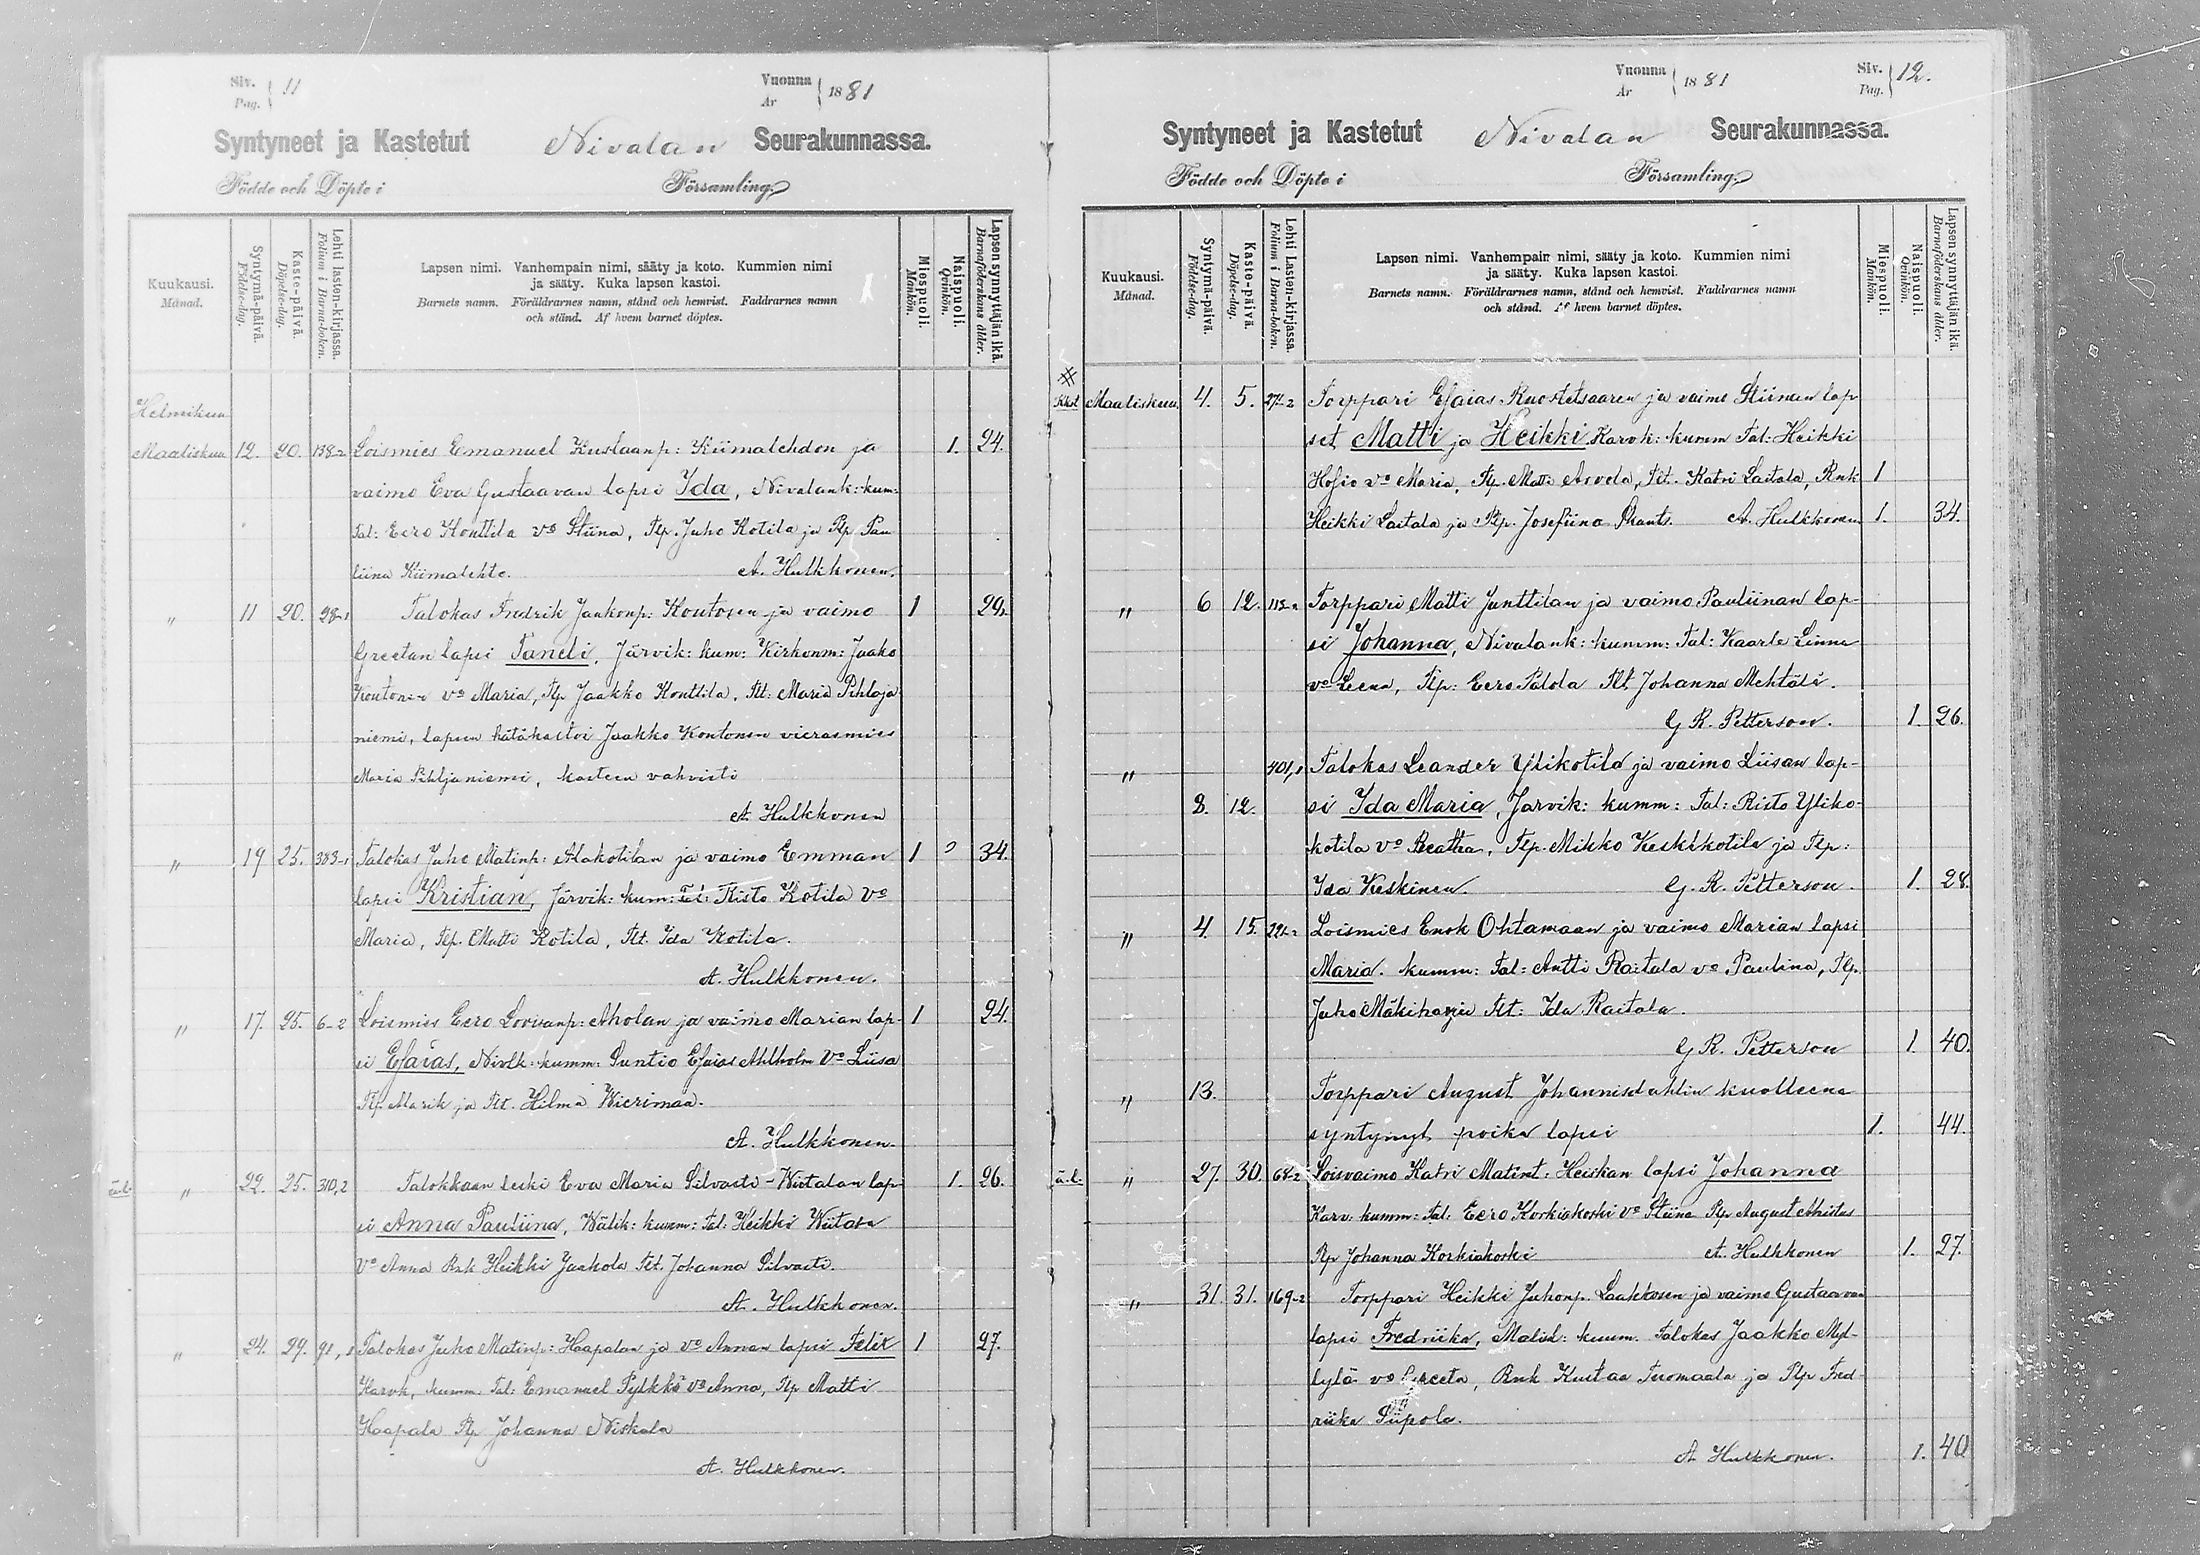 Siv. Pag. 11
Vuonna År 1881
Syntyneet ja Kastetut Nivalan Seurakunnassa.
Födde och Döpte i Församling.
Kuukausi. Månad.
Syntymä-päivä. Födelse-dag.
Kaste-päivä. Döpelse-dag.
Lehti lasten-kirjassa. Folium i Barna-boken.
Lapsen nimi. Vanhempain nimi, sääty ja koto. Kummien nimi
ja sääty. Kuka lapsen kastoi.
Barnets namn. Föräldrarnes namn, stånd och hemvist. Faddrarnes namn
och stånd. Af hvem barnet döptes.
Miespuoli. Mankön.
Naispuoli. Qvinkön.
Lapsensynnyttäjän ikä. Barnaföderskans ålder.
Helmikuu
Maaliskuu 12. 20. 138-2 Loismies Emanuel Kustaanp: Kiimalehdon ja 1. 24.
vaimo Eva Gustaavan lapsi Ida, Nivalank: kum:
Tal: Eero Konttila vo Stiina, Plp. Juho Kotila ja Plp Pau
liina Kiimalehto. A. Hulkkonen.
" 11 20. 28-1 Talokas Fredrik Jaakonp: Koutosen ja vaimo 1 29.
Greetan lapsi Taneli, Järvik: kum: Kirkonm: Jaako
Koutonen vo Maria, Plp Jaakko Konttila, Plt: Maria Pihlaja
niemi, lapsen hätäkastoi Jaakko Kontonen vierasmies
Maria Pihljaniemi, kasteen vahvisti
A. Hulkkonen
" 19 25. 383-1 Talokas Juho Matinp: Alakotilan ja vaimo Emman 1 34.
lapsi Kristian, Järvik: kum: Tal: Risto Kotila Vo
Maria, Plp. Matti Kotila, Plt. Ida Kotila.
A. Hulkkonen.
" 17. 25. 6-2 Loismies Eero Lovisanp: Aholan ja vaimo Marian lap- 1 24.
si Esaias, Nivlk: kumm: Suntio Esaias Ahlholm Vo Liisa
Plp Marik ja Plt. Hilma Wierimaa.
A. Hulkkonen.
ä.l. " 22. 25. 310,2 Talokkaan leski Eva Maria Pilvasti-Wiitalan lap- 1. 26.
si Anna Pauliina, Wälik: kumm: Tal: Heikki Wiitala
Vo Anna Rnk Heikki Jaakola Plt. Johanna Pilvasti.
A. Hulkkonen.
" 24. 29. 91,1 Talokas Juho Matinp: Haapalan ja Vo Annan lapsi Felix 1 27.
Karvk, kumm: Tal: Emanuel Pylkkö vo Anna, Plp Matti
Haapala Plp Johanna Niskala
A. Hulkkonen.
Vuonna År 1881
Siv. Pag. 12.
Syntyneet ja Kastetut Nivalan Seurakunnassa.
Födde och Döpte i Församling.
Kuukausi. Månad.
Syntymä-päivä. Födelse-dag.
Kaste-päivä. Döpelse-dag.
Lehti Lasten-kirjassa. Folium i Barna-boken.
Lapsen nimi. Vanhempain nimi, sääty ja koto. Kummien nimi
ja sääty. Kuka lapsen kastoi.
Barnets namn. Föräldrarnes namn, stånd och hemvist. Faddrarnes namn
och stånd. Af hvem barnet döptes.
Miespuoli. Mankön.
Naispuoli. Qvinkön.
Lapsen synnyttäjän ikä. Barnaföderskans ålder.
Maaliskuu. 4. 5. 274-2 Torppari Esaias Ruostetsaaren ja vaimo Stiinan lap
set Matti ja Heikki Karvk: kumm Tal: Heikki
Hosio vo Maria, Plp. Matti Arvela, Plt. Katri Laitala, Rnk 1
Heikki Laitala ja Plp. Josefiina A. Hulkkonen 1. 34.
" 6 12. 112-2 Torppari Matti Junttilan ja vaimo Pauliinan lap-
si Johanna, Nivalank: kumm: Tal: Kaarle Linna
vo Leena, Plp: Eero Palola Plt Johanna Mehtälä.
G R. Petterson. 1. 26.
" 401,1 Talokas Leander Ylikotila ja vaimo Liisan lap-
8. 12. si Ida Maria, Jarvik: kumm: Tal: Risto Yliko-
kotila vo Beatha, Plp. Mikko Keskikotila ja Plp:
Ida Keskinen. G. R. Petterson. 1. 28.
" 4. 15. 221-2 Loismies Enok Ohtamaan ja vaimo Marian lapsi
Maria. kumm: Tal: Antti Raitala vo Paulina, Plp.
Juho Mäkiharju Plt: Ida Raitala.
G R. Petterson 1. 40.
" 13. Torppari August Johannisdahlin kuolleena
syntynyt poika lapsi 1. 44.
ä.l. " 27. 30. 68-2 Loisvaimo Katri Matint: Heiskan lapsi Johanna
Karv: kumm: Tal: Eero Korkiakoski vo Stiina Plp August Ahistus
Plp Johanna Korkiakoski A. Hulkkonen 1. 27.
" 31. 31. 169-2 Torppari Heikki Juhonp. Laakkosen ja vaimo Gustaavan
lapsi Fredriika, Malisk: kuum. Talokas Jaakko Myl-
lylä vo Greeta, Rnk Kustaa Tuomaala ja Plp Fred-
riika Piipola.
A Hulkkonen. 1. 40